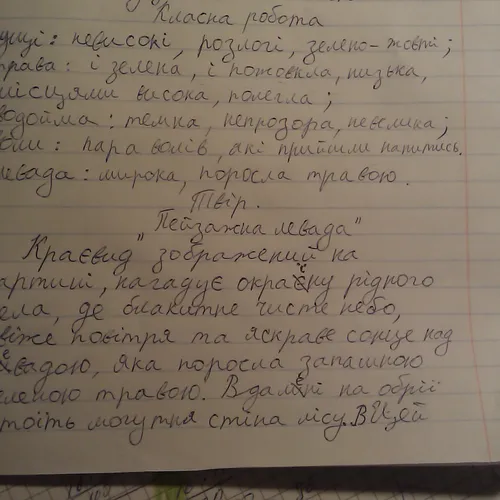 Класна робота
ущі: невисокі, розлогі, зелено-жовті;
рава: і зелена, і пожовкла, низька,
місцями висока, полегла;
водойма: темна, непрозора, невелика;
воли: пара волів, які прийшли напитись.
левада: широка, поросла травою.
Твір.
"Пейзажна левада"
Краєвид зображений на
артині, нагадує окраїну рідного
ела, де блакитне чисте небо,
віже повітря та яскраве сонце над
левадою, яка поросла запашною
зеленою травою. Вдалені на обрії
тоїть могутня стіна лісу. В Цей